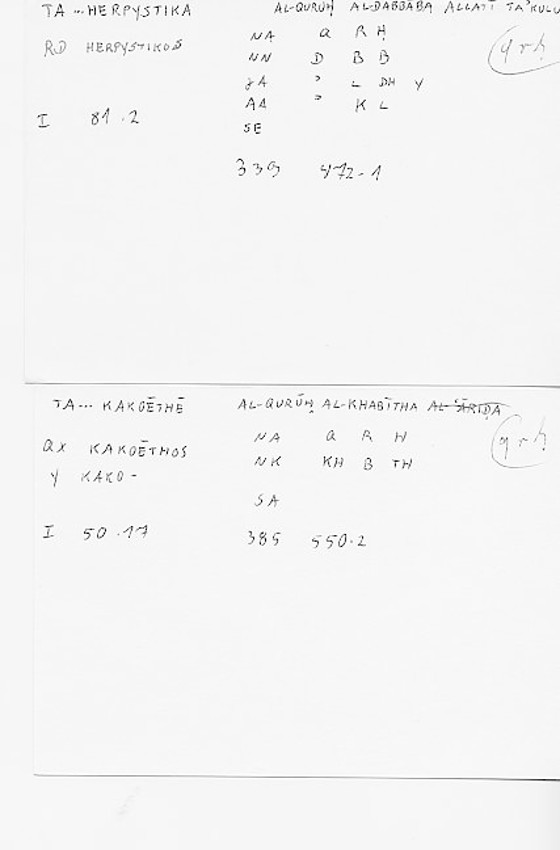 TA ... HERPYSTIKA AL-QURŪḤ AL-DABBĀBA ALLATĪ TAʾKULU
RD HERPYSTIKOS NA Q R Ḥ qrḥ
NN D B B
ʾ L DH Y
I 81.2 AA ʾ K L
SE
339 472-1
TA ... KAKOĒTHĒ AL-QURŪḤ AL-KHABĪTHA
NA Q R H qrḥ
QX KAKOĒTHOS NK KH B TH
Y KAKO-
SA
I 50.17 385 550.2